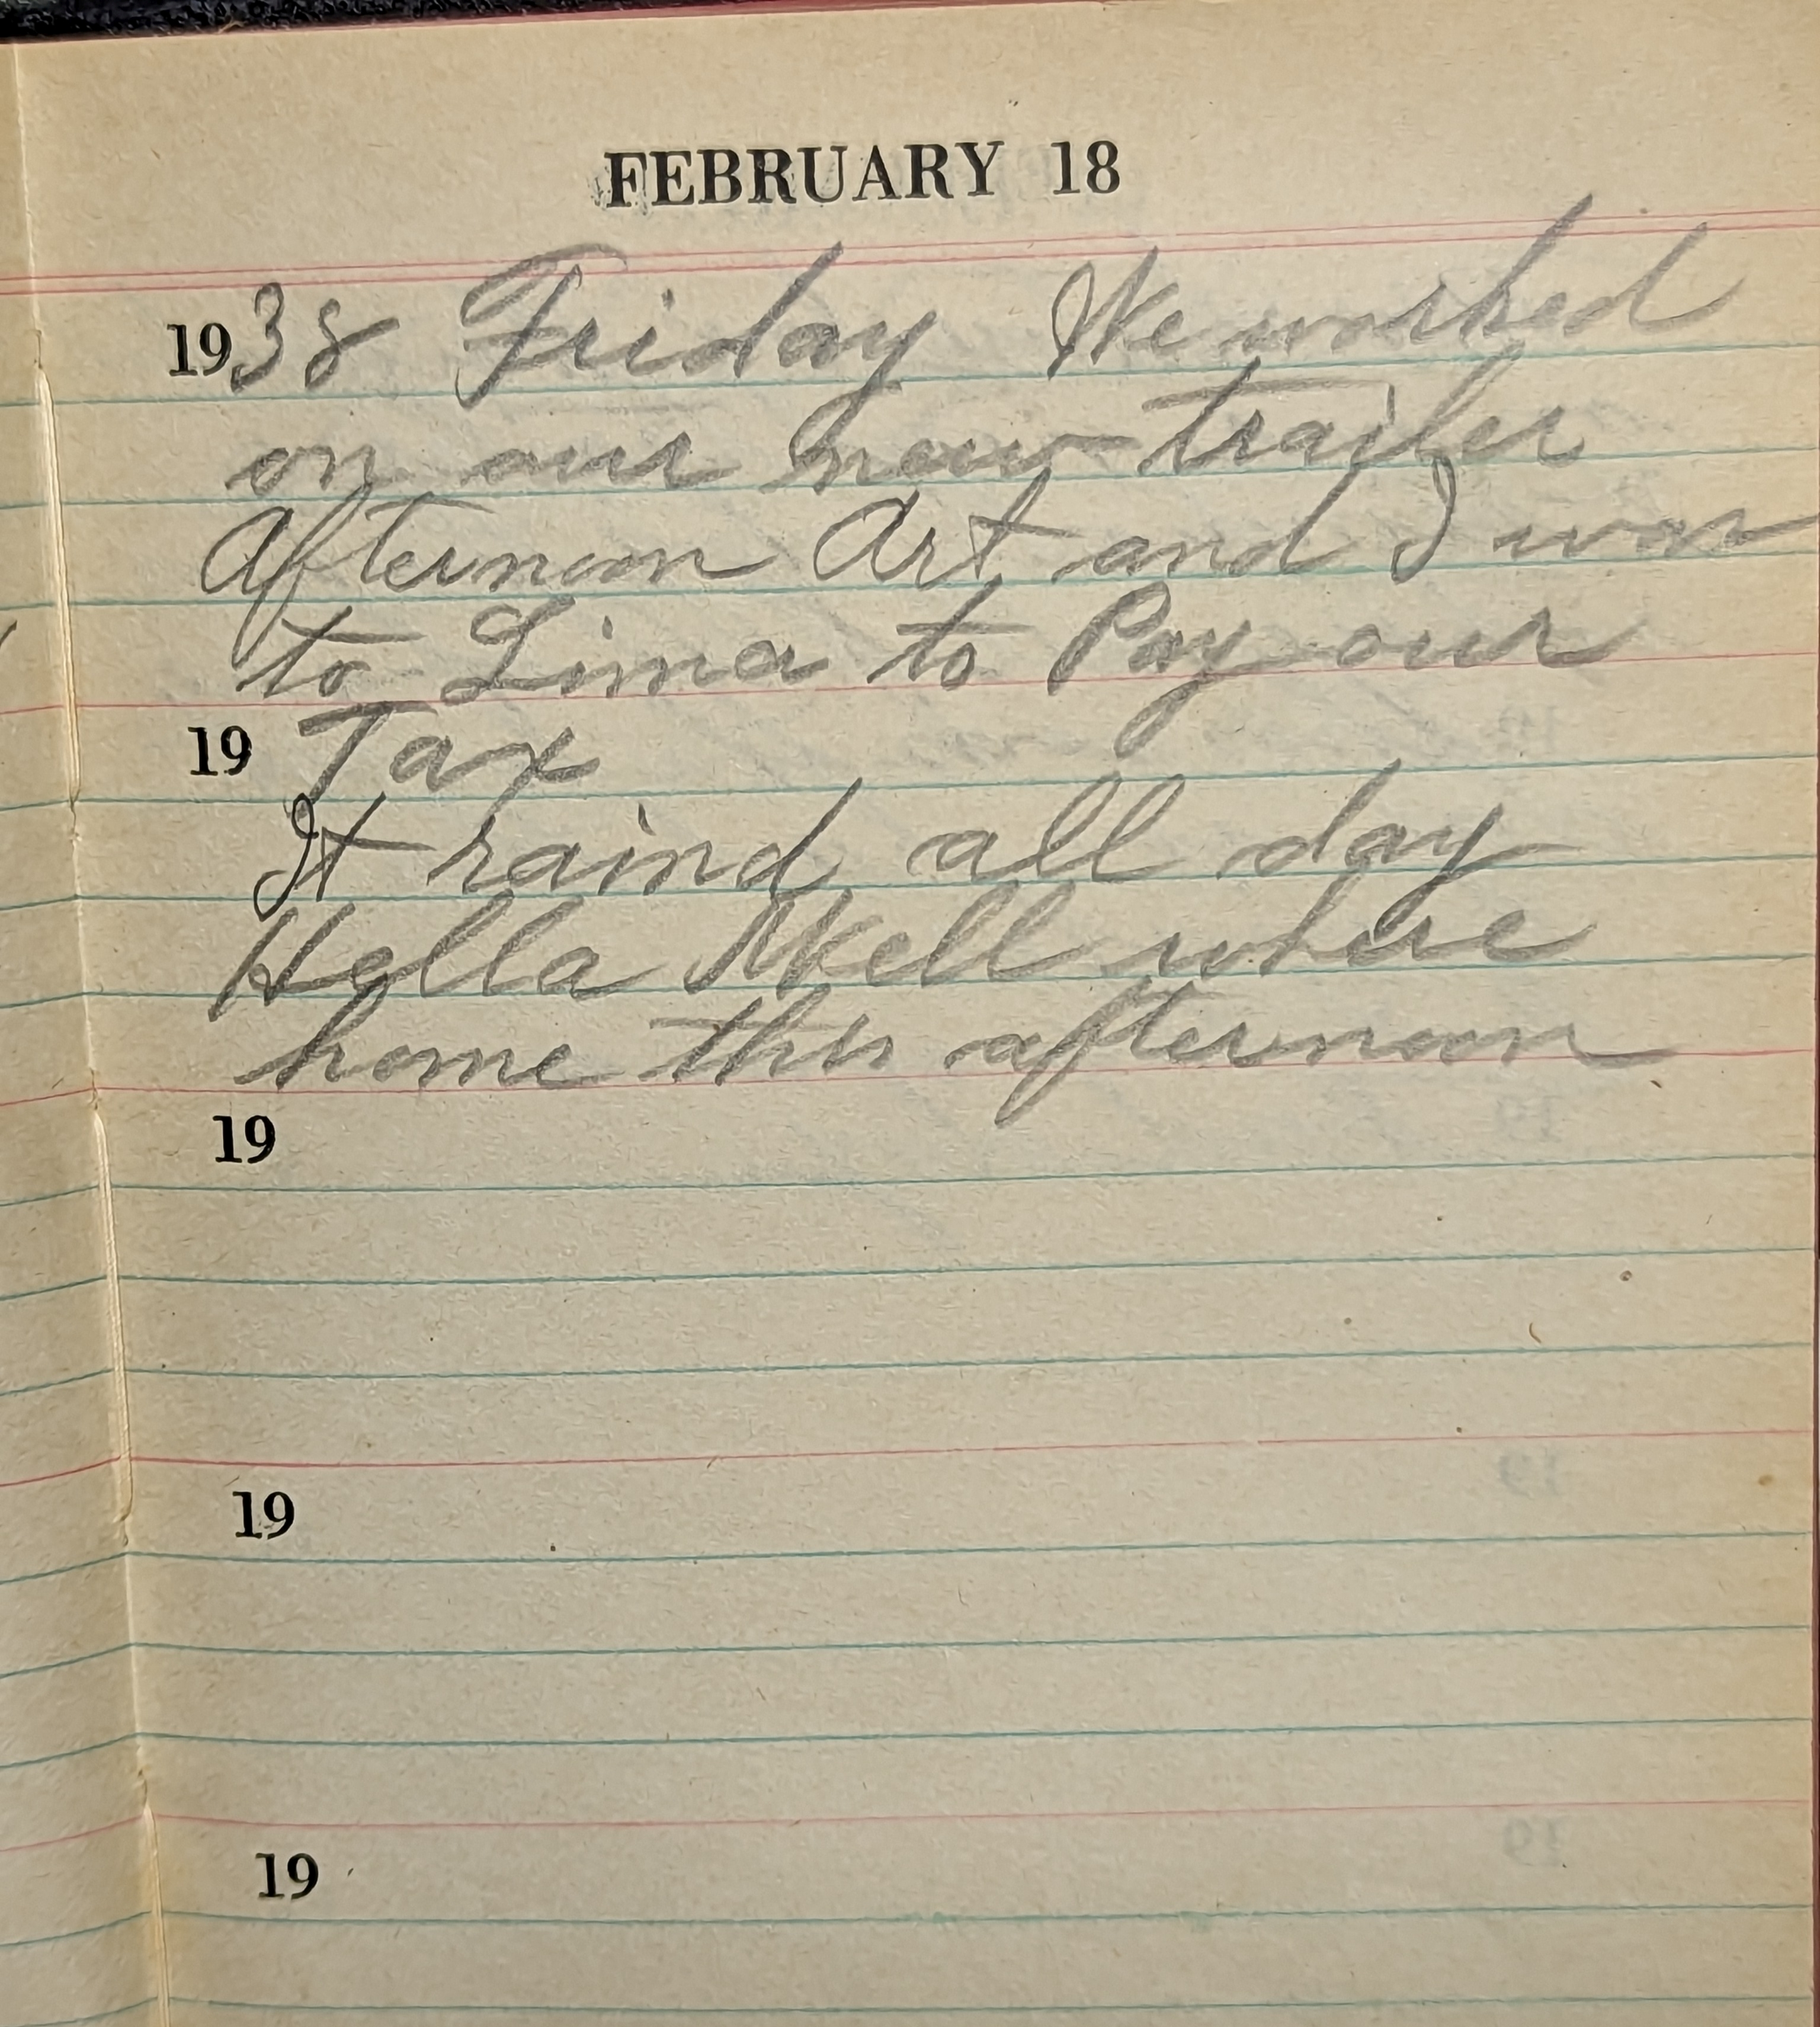 FEBRUARY 18
1938 Friday We worked
on our new trailer
Afternoon Art and I was
to Lima to Pay our
19 Tax
It raind all day
Hella Well where
home this afternoon
19
19
19